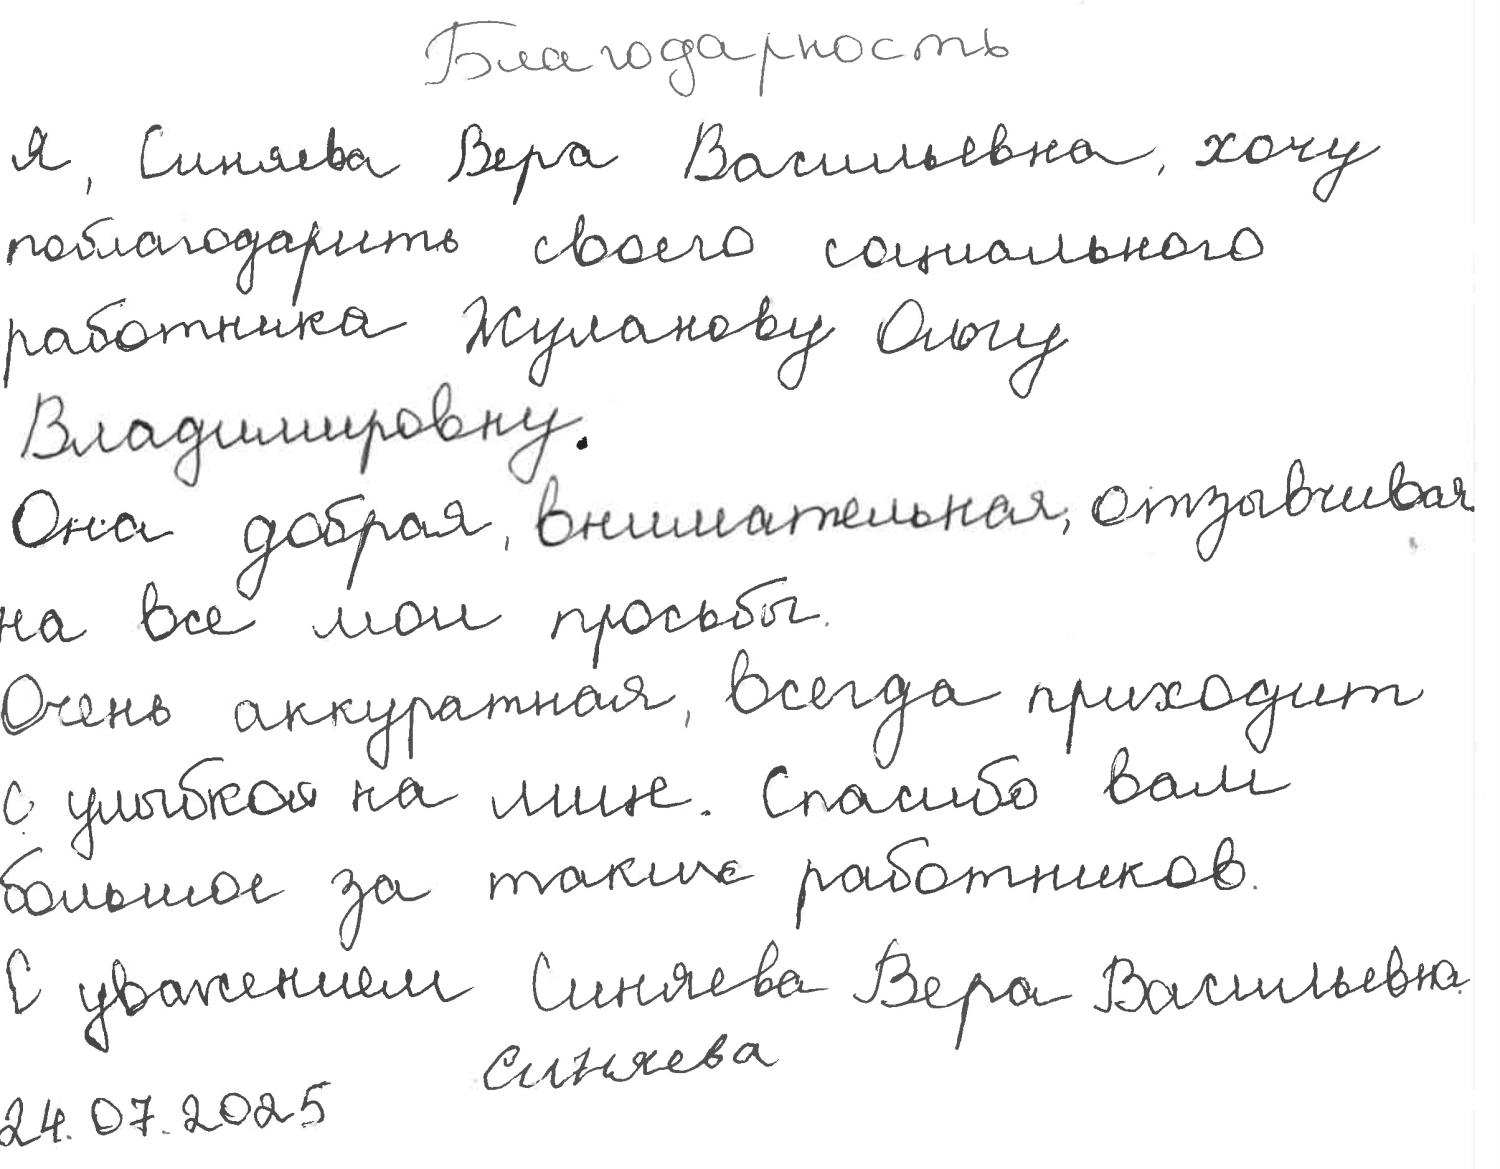 Благодарность
Я, Синяева Вера Васильевна, хочу
поблагодарить своего социального
работника Жуланову Ольгу
Владимировну.
Она добрая, внимательная, отзывчивая
на все мои просьбы.
Очень аккуратная, всегда приходит
с улыбкой на лице. Спасибо вам
большое за такие работников.
С уважением Синяева Вера Васильевна
Синяева
24.07.2025